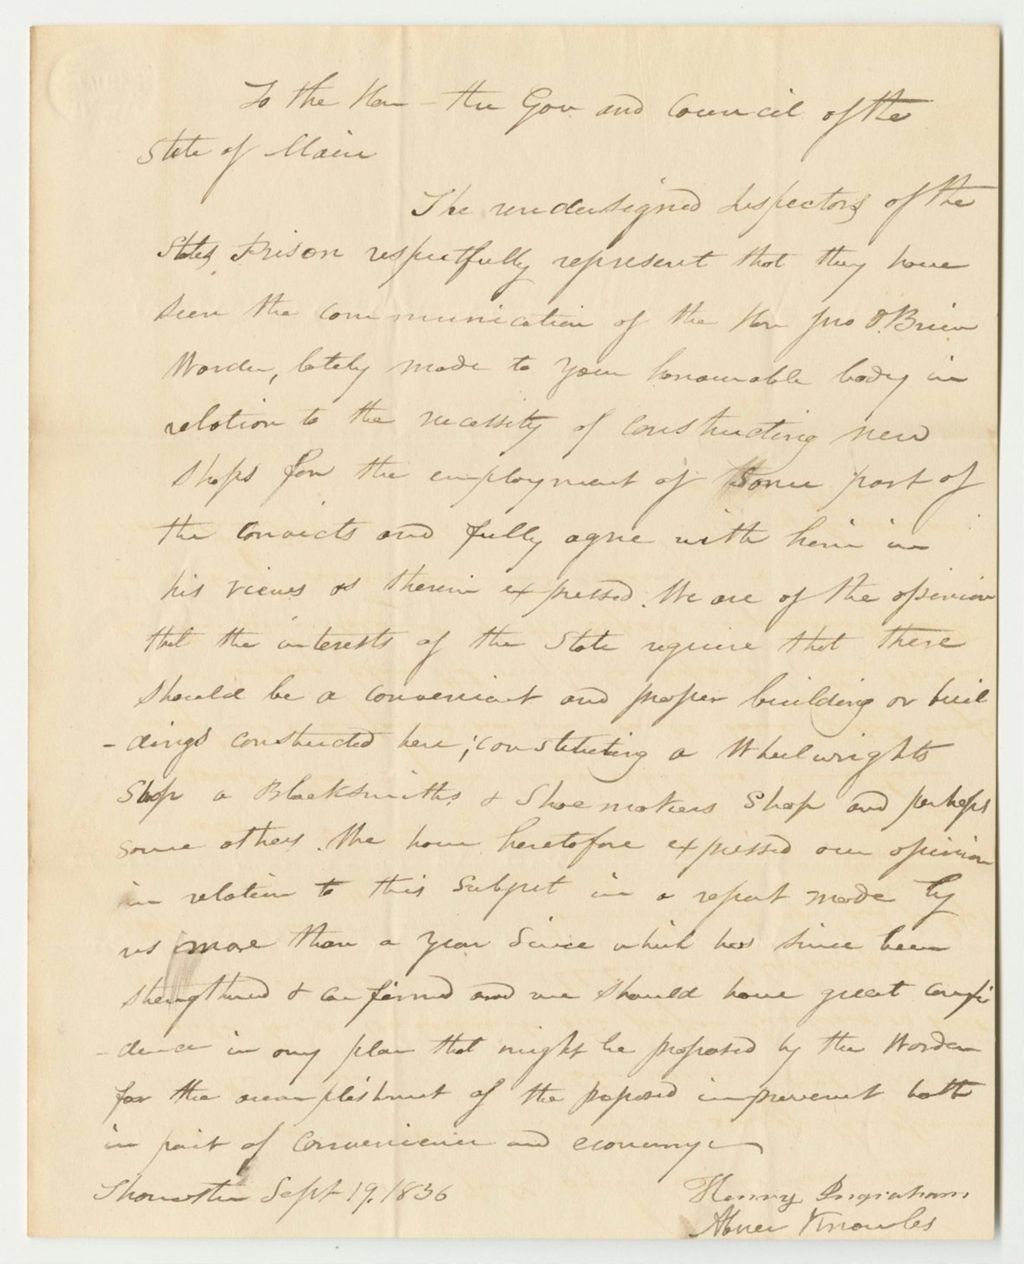 To the Hon - the Gov. and Council of the
State of Maine
The undersigned Inspectors of the
States Prison respectfully represent that they have
seen the communication of the Hon Jno O'Brien
Warden, lately made to your honourable body in
relation to the necessity of constructing new
shops for the employment of some part of
the convicts and fully agree with him in
his views as therein expressed. We are of the opinion
that the interests of the State require that there
should be a convenient and proper building or buil
-dings constructed here; constituting a Wheelwrights
Shop a Blacksmiths & Shoemakers Shop and perhaps
some others. We have heretofore expressed our opinion
in relation to this Subject in a report made by
us more than a year since which has since been
strengthened & confirmed and we should have great confi
-dence in any plan that might be proposed by the Warden
for the accomplishment of the proposed improvement both
in point of convenience and economy
Thomaston Sept 19. 1836
Henry Ingraham
Abner Knowles